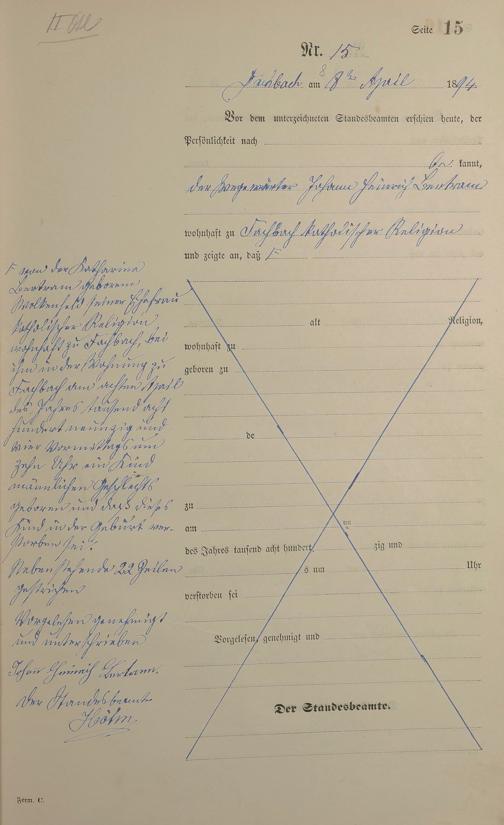 Seite 15
Nr. 15
am 8ten April 1894.
Vor dem unterzeichneten Standesbeamten erschien heute, der
Persönlichkeit nach
be kannt,
der Wegewärter Johann Heinrich Bertram
wohnhaft zu Fachbach katholischer Religion
und zeigte an, daß
von der Katharina
Bertram geborenen
seiner Ehefrau
katholischer Religion
wohnhaft zu Fachbach, bei
ihm in der Wohnung zu
Fachbach am achten April
des Jahres tausend acht
hundert neunzig und
vier Vormittags um
zehn Uhr ein Kind
männlichen Geschlechts
geboren und daß dieses
Kind in der Geburt ver-
storben sei.
Nebenstehende 22 Zeilen
gestrichen
Vorgelesen genehmigt
und unterschrieben
Johann Heinrich Bertram.
Der Standesbeamte
alt Religion,
wohnhaft zu
geboren zu
de
zu
am
des Jahres tausend acht hundert zig und
s um Uhr
verstorben sei
Vorgelesen, genehmigt und
Der Standesbeamte.
Form. C.